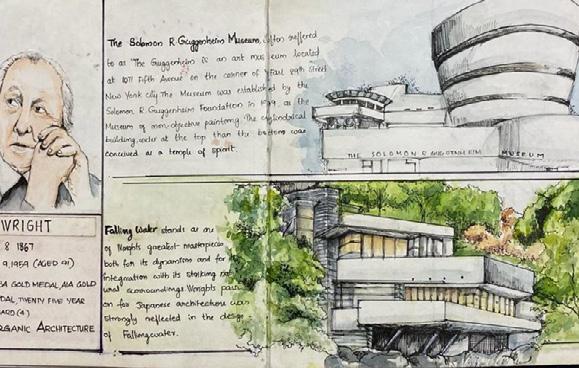 The Solomon R. Guggenheim Museum, often reffered
to as "The Guggenheim is an art museum located
at 1071 Fifth Avenue on the corner of East 89th Street
New York city. The Museum was established by the
Solomon R. Guggenheim Foundation in as the
Museum of non-objective painting. The cylindrical
building, wider at the top than the bottom was
conceived as a temple of spirit.
THE SOLOMON R GUGGENHEIM MUSEUM
WRIGHT
8 1867
9, 1959 (AGED 91)
GOLD MEDAL, AIA GOLD
TWENTY FIVE YEAR
(4)
ORGANIC ARCHITECTURE
Falling Water stands as one
of Wrights greatest masterpieces
both for its dynamism and for
integration with its striking
surroundings. Wrights
for Japanese architecture was
strongly reflected in the design
of Fallingwater.